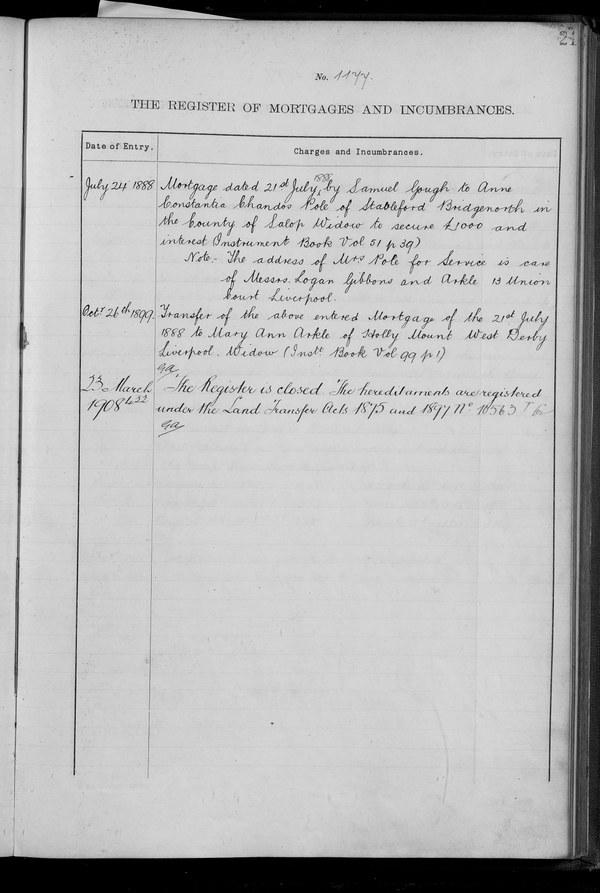 No. 1177.
THE REGISTER OF MORTGAGES AND INCUMBRANCES.
Date of Entry.
Charges and Incumbrances.
July 24 1888 Mortgage dated 21st July 1888 by Samuel Gough to Anne
Constantia Chandos Pole of Stableford Bridgenorth in
the County of Salop Widow to secure £1000 and
interest (Instrument Book Vol 51 p 39)
Note:- The address of Mrs Pole for Service is care
of Messrs. Logan Gibbons and Arkle 13 Union
Court Liverpool.
Octr 26th 1899. Transfer of the above entered Mortgage of the 21st July
1888 to Mary Ann Arkle of Holly Mount West Derby
Liverpool. Widow (Instt Book Vol 99 p 1)
23 March The Register is closed. The hereditaments are registered
1908 under the Land Transfer Acts 1875 and 1897 No 10563